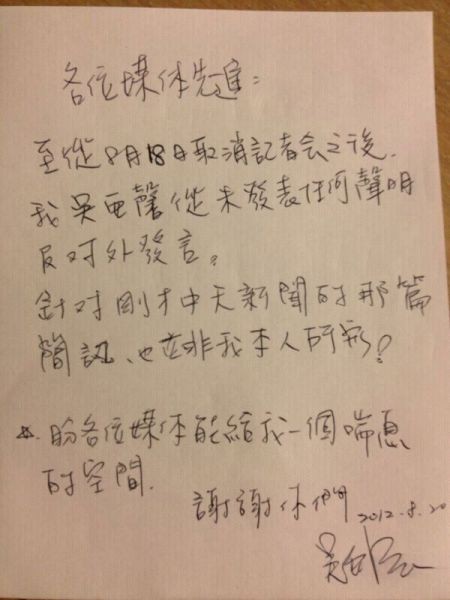 各位媒体先進：
至從8月18日取消記者会之後.
我吳亞馨從未發表任何聲明
及对外發言。
針对剛才中天新聞的那篇
簡訊、也並非我本人所寫!
☆.盼各位媒体能給我一個喘息
的空間.
謝謝你們 2012.8.20